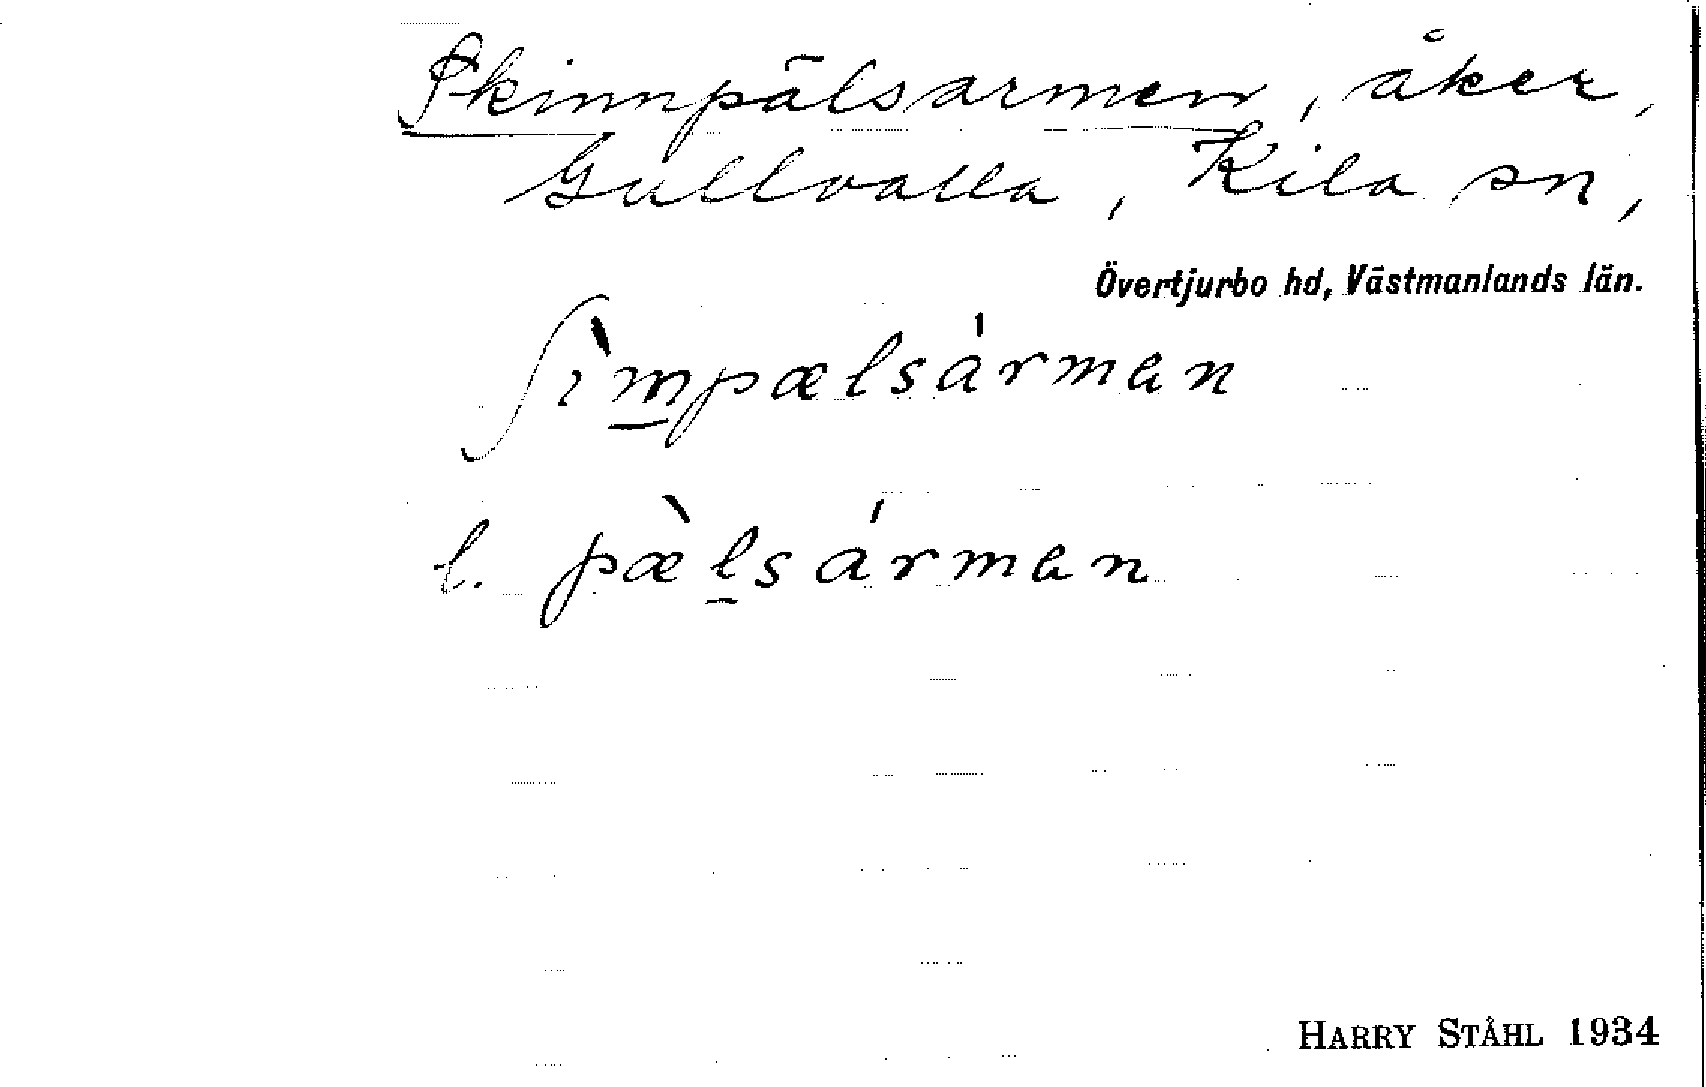 Skinnpälsarmen, åker,
Gullvalla, Kila sn,
Övertjurbo hd, Västmanlands län.
ʃìm̲pælsármɐn
l. pæ̀l̲sármɐn
HARRY STÅHL 1934